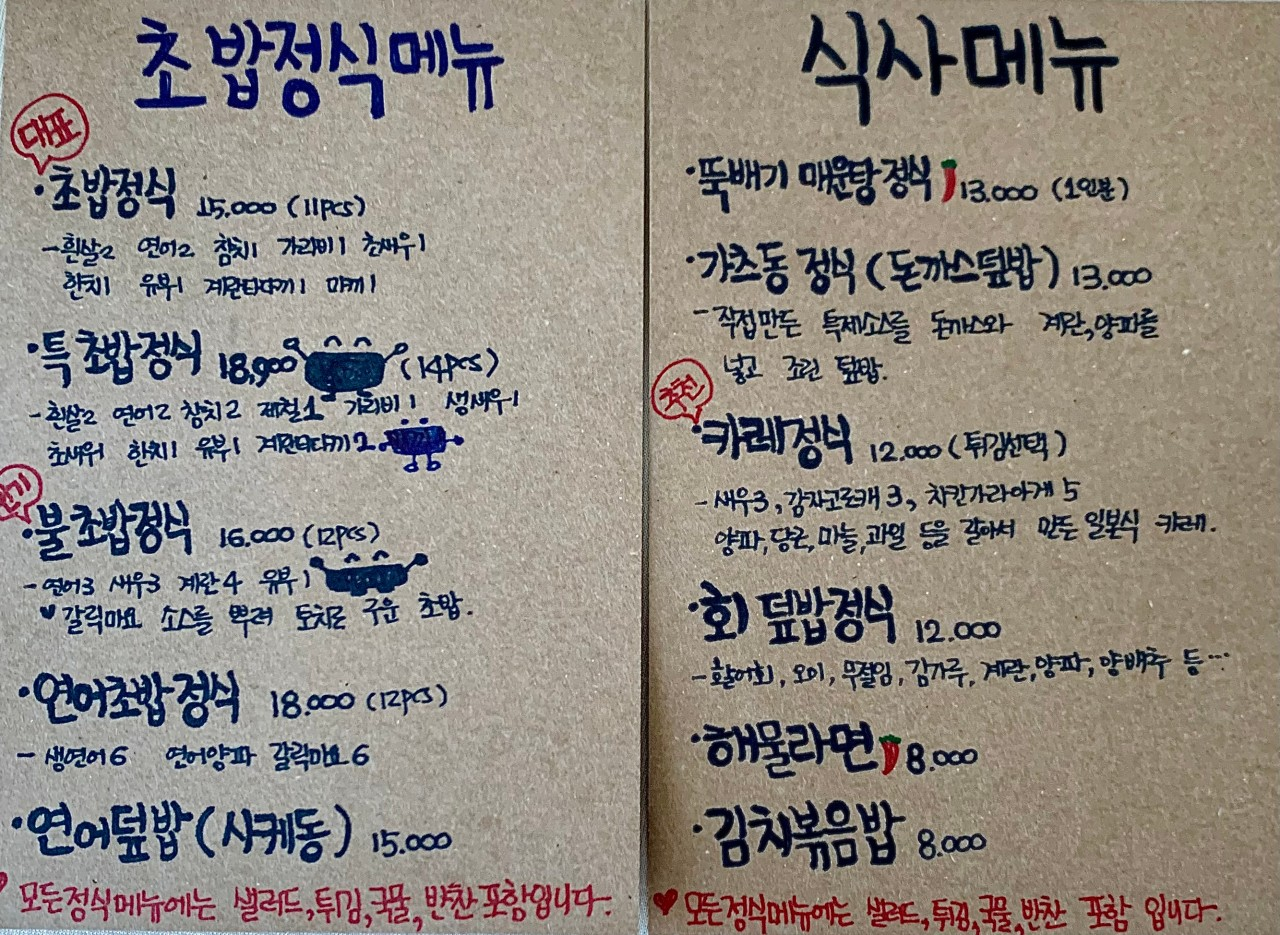 초밥정식메뉴
대표
·초밥정식 15.000 (11pcs)
-흰살2 연어2 참치1 가리비1 초새우1
한치1 유부1 계란타다끼1 마끼1
·특초밥정식 18,900 (14pcs)
-흰살2 연어2 참치2 제철1 가리비1 생새우1
초새우1 한치1 유부1 계란타다끼2
인기
·불초밥정식 16.000 (12pcs)
-연어3 새우3 계란4 유부1
♥갈릭마요 소스를 뿌려 토치로 구운 초밥.
·연어초밥정식 18.000 (12pcs)
- 생연어6 연어양파 갈릭마요6
·연어덮밥(사케동) 15.000
♥모든정식메뉴에는 샐러드,튀김,국물,반찬포함입니다.
식사메뉴
·뚝배기 매운탕정식 13.000 (1인분)
·가츠동 정식 (돈까스덮밥) 13.000
-직접만든 특제소스를 돈까스와 계란,양파를
넣고 조린 덮밥.
추천
·카레정식 12.000 (튀김선택)
-새우3, 감자고로케3, 치킨가라아게5
양파,당근,마늘,과일 등을 갈아서 만든 일본식 카레.
·회 덮밥정식 12.000
-활어회, 오이, 무절임, 김가루, 계란,양파, 양배추 등···
·해물라면 8.000
·김치볶음밥 8.000
♥모든정식메뉴에는 샐러드,튀김,국물,반찬 포함 입니다.